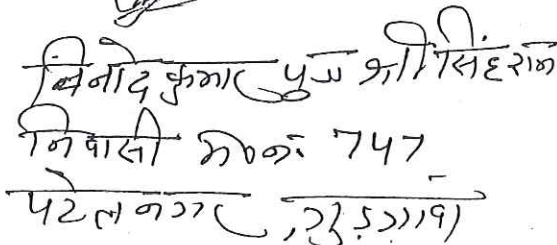 विनोद कुमार पुत्र श्री सिंह राम
निवासी म०नं० 747
पटेल नगर, गुड़गावां